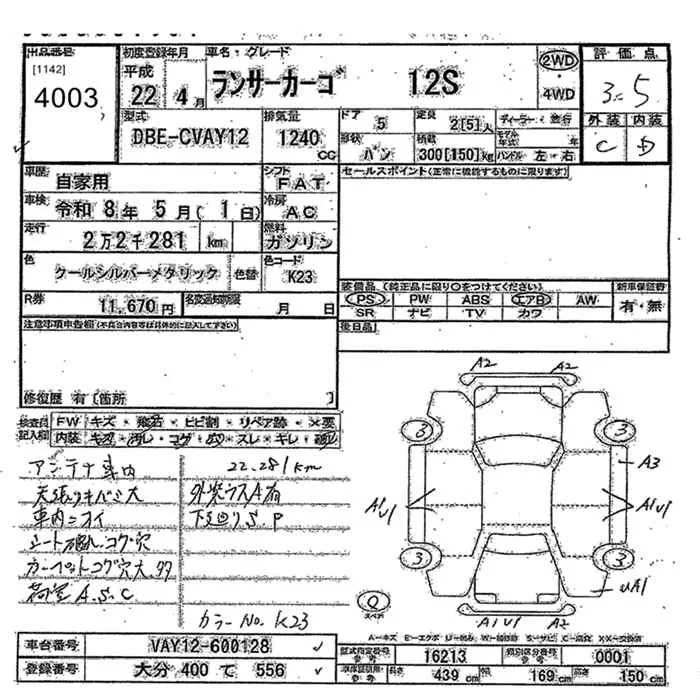 出品番号
[1142]
4003
初度登録年月
平成
22 4月
車名・グレード
ランサーカーゴ 12S
2WD
4WD
評価点
3.5
外装 内装
C D
型式
DBE-CVAY12
排気量
1240
CC
ドア
5
形状
バン
定員
2[5]人
積載
300[150]kg
ディーラー・並行
モデル
年式 年
ハンドル 左・右
車歴
自家用
シフト
FAT
セールスポイント(正常に機能するものに限ります)
車検
令和 8年 5月( 1日)
冷房
AC
走行
2万2千281 km
燃料
ガソリン
色
クールシルバーメタリック
色替
色コード
K23
装備品 (純正品に限り○をつけてください)
新車保証書
PS PW ABS エアB AW
SR ナビ TV カワ
有・無
R券
11,670円
名変期限
月 日
後日品
注意事項申告欄(不具合内容等は具体的に記入して下さい)
修復歴 有[箇所 ]
検査員
記入欄
FW キズ・飛石・ヒビ割・リペア跡・×要
内装 キズ・汚レ・コゲ・穴・スレ・キレ・破レ
アンテナ車内
22.281km
天張りキバミ大
外装ウスA有
車内ニオイ
下廻りS.P
シート破れ.コゲ.穴
カーペットコゲ穴大.タタ
荷室A.S.C
カラーNo.K23
A2 A2
3 3
A3
A1U1 A1U1
3 3
UA1
A1U1 A2
Q
スペア
A−キズ E−エクボ U−凹み W−補修跡 S−サビ C−腐食 XX−交換済
車台番号
VAY12-600128
登録番号
大分 400 て 556
型式指定番号
参考
16213
類別区分番号
参考
0001
車庫証明用
参考
長さ
439cm
幅
169cm
高さ
150cm